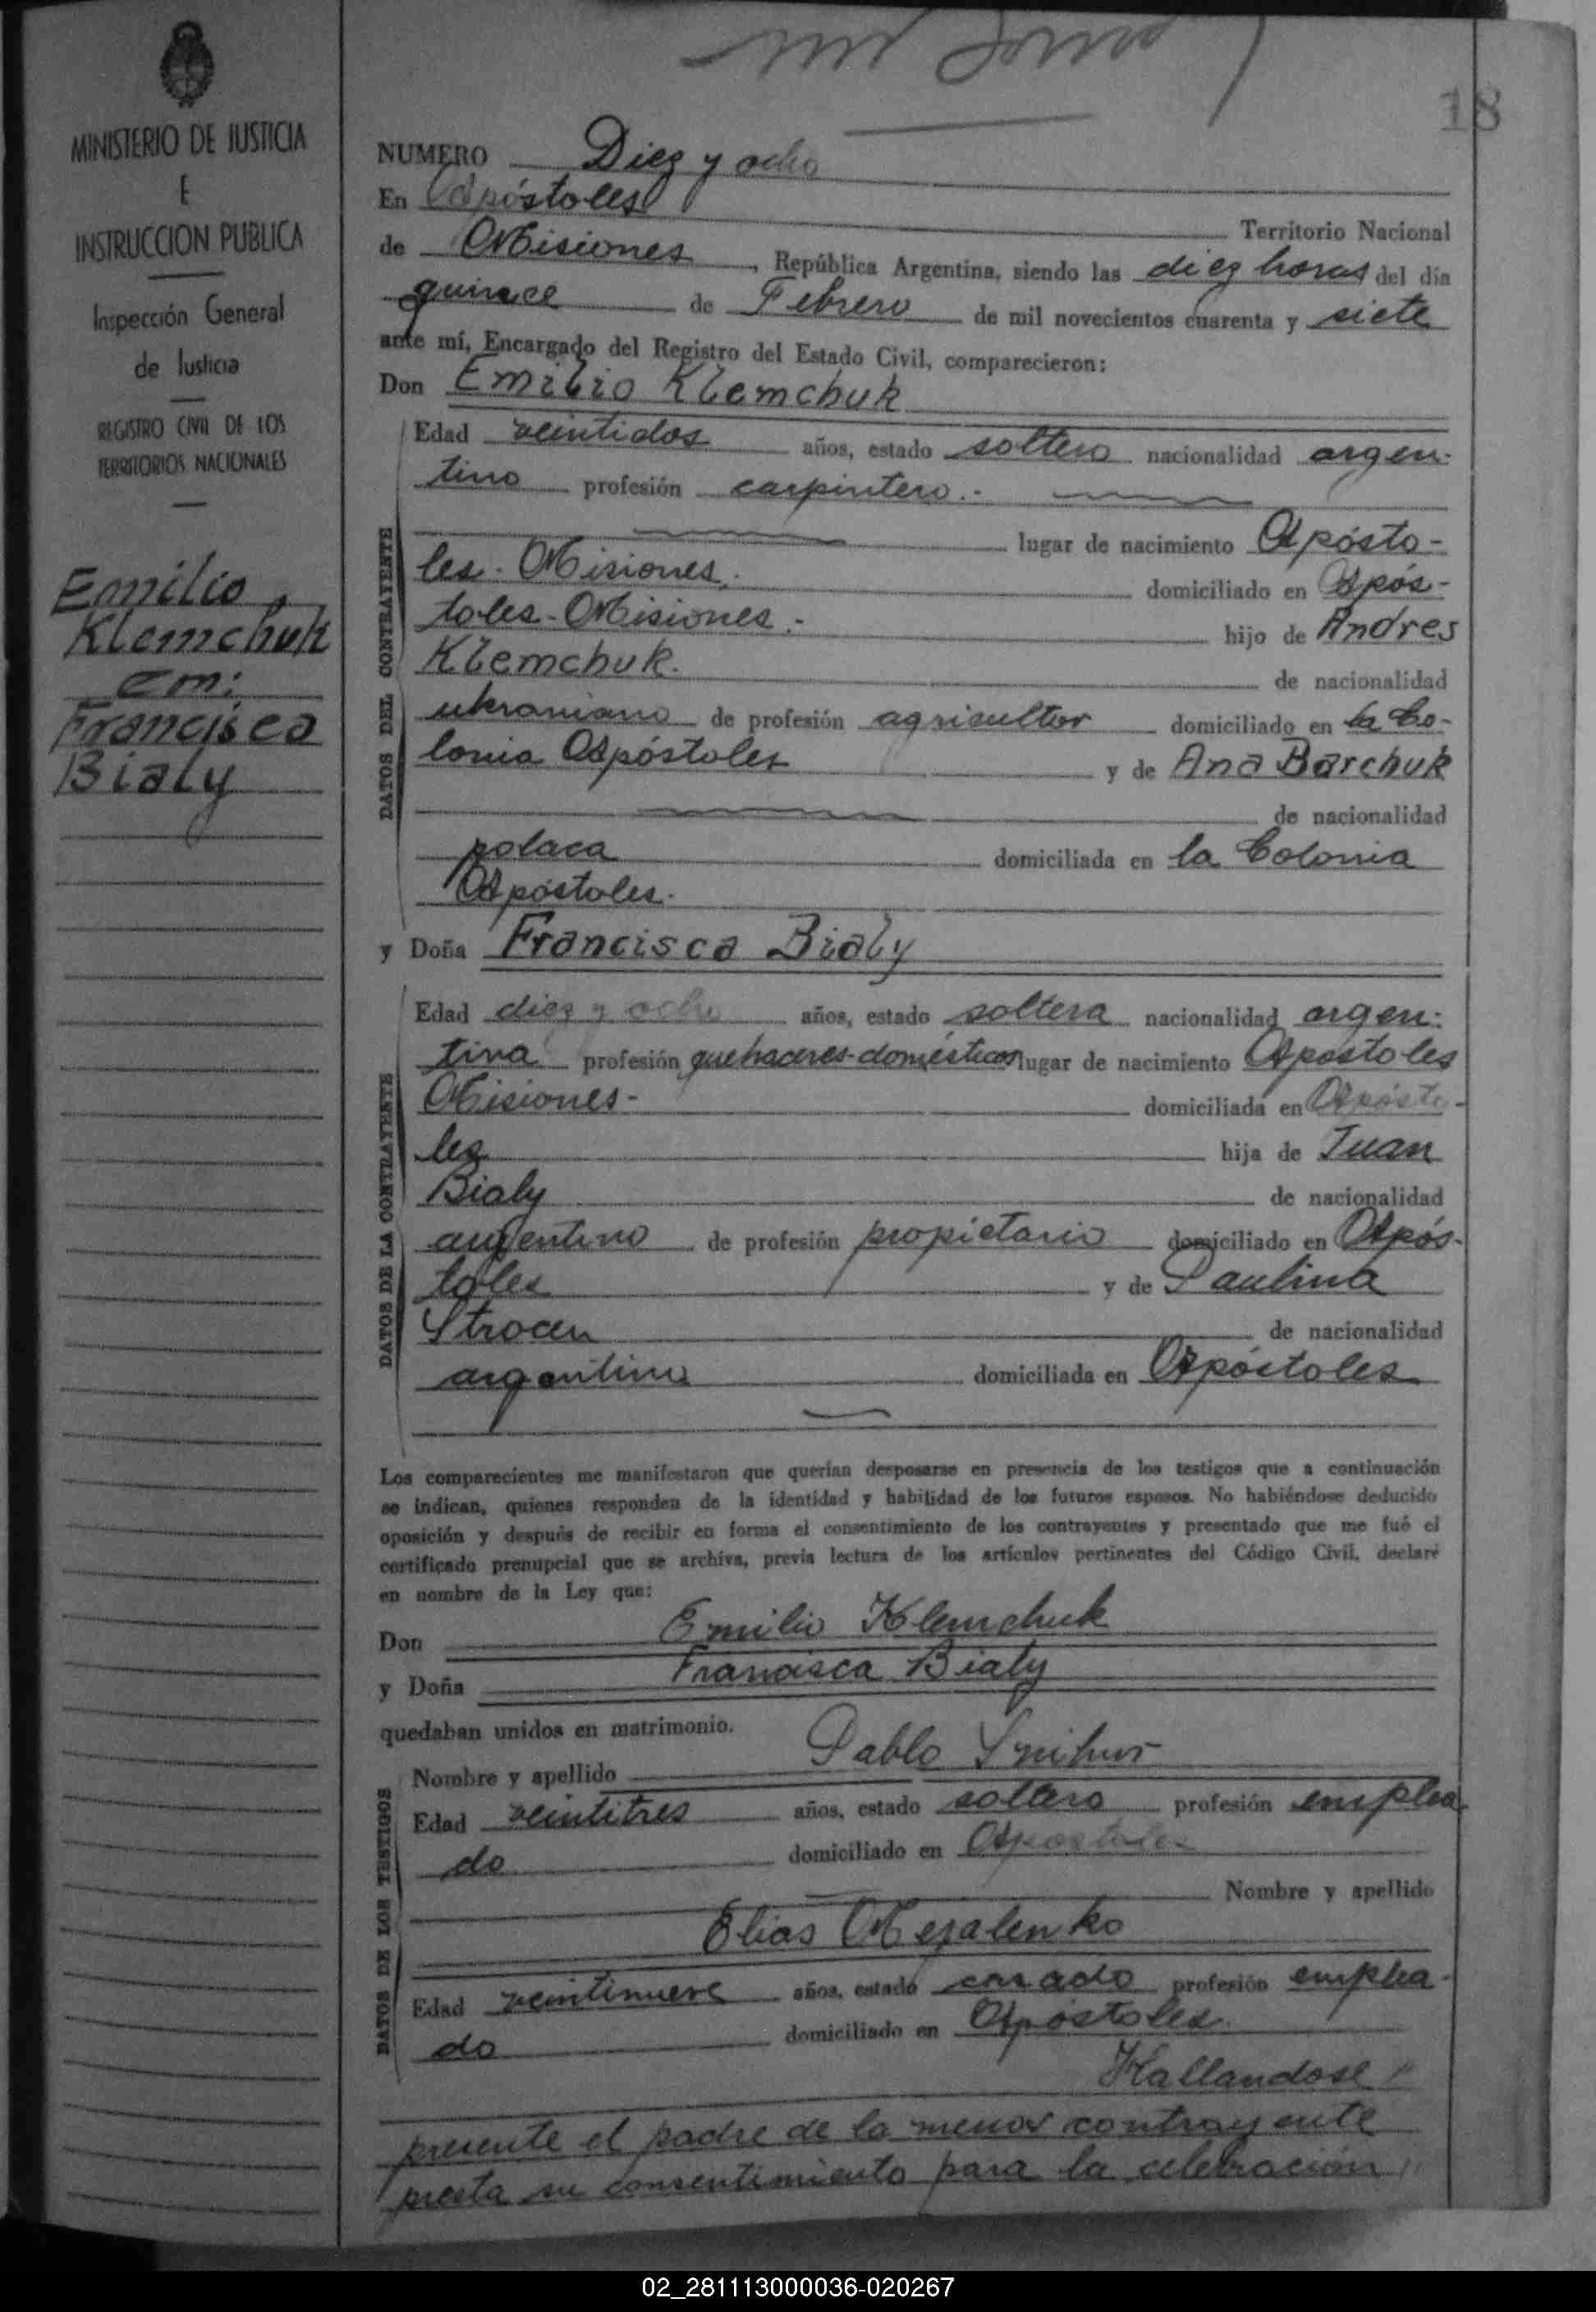 18
MINISTERIO DE JUSTICIA
E
INSTRUCCION PUBLICA
Inspección General
de Justicia
REGISTRO CIVIL DE LOS
TERRITORIOS NACIONALES
Emilio
Klemchuk
con:
Francisca
Bialy
NUMERO Diez y ocho
En Apóstoles
Territorio Nacional
de Misiones, República Argentina, siendo las diez horas del día
quince de Febrero de mil novecientos cuarenta y siete
ante mí, Encargado del Registro del Estado Civil, comparecieron:
Don Emilio Klemchuk
DATOS DEL CONTRAYENTE
Edad veintidos años, estado soltero nacionalidad argen-
tino profesión carpintero.-
lugar de nacimiento Apósto-
les - Misiones. domiciliado en Após-
toles - Misiones.- hijo de Andres
Klemchuk. de nacionalidad
ukraniano de profesión agricultor domiciliado en la Co-
lonia Apóstoles y de Ana Barchuk
de nacionalidad
polaca domiciliada en la Colonia
Apóstoles.
y Doña Francisca Bialy
DATOS DE LA CONTRAYENTE
Edad diez y ocho años, estado soltera nacionalidad argen-
tina profesión quehaceres-domésticos lugar de nacimiento Apostoles
Misiones- domiciliada en Apósto-
les hija de Juan
Bialy de nacionalidad
argentino de profesión propietario domiciliado en Após-
toles y de Paulina
Strocen de nacionalidad
argentina domiciliada en Apóstoles
Los comparecientes me manifestaron que querían desposarse en presencia de los testigos que a continuación
se indican, quienes responden de la identidad y habilidad de los futuros esposos. No habiéndose deducido
oposición y después de recibir en forma el consentimiento de los contrayentes y presentado que me fué el
certificado prenupcial que se archiva, previa lectura de los artículos pertinentes del Código Civil, declaré
en nombre de la Ley que:
Don Emilio Klemchuk
y Doña Francisca Bialy
quedaban unidos en matrimonio.
DATOS DE LOS TESTIGOS
Nombre y apellido Pablo Snihur
Edad veintitres años, estado soltero profesión emplea
do domiciliado en Apostoles
Nombre y apellido
Elias Mezalenko
Edad veintinueve años, estado casado profesión emplea-
do domiciliado en Apóstoles.
Hallandose
presente el padre de la menor contrayente
presta su consentimiento para la celebración
02_281113000036-020267